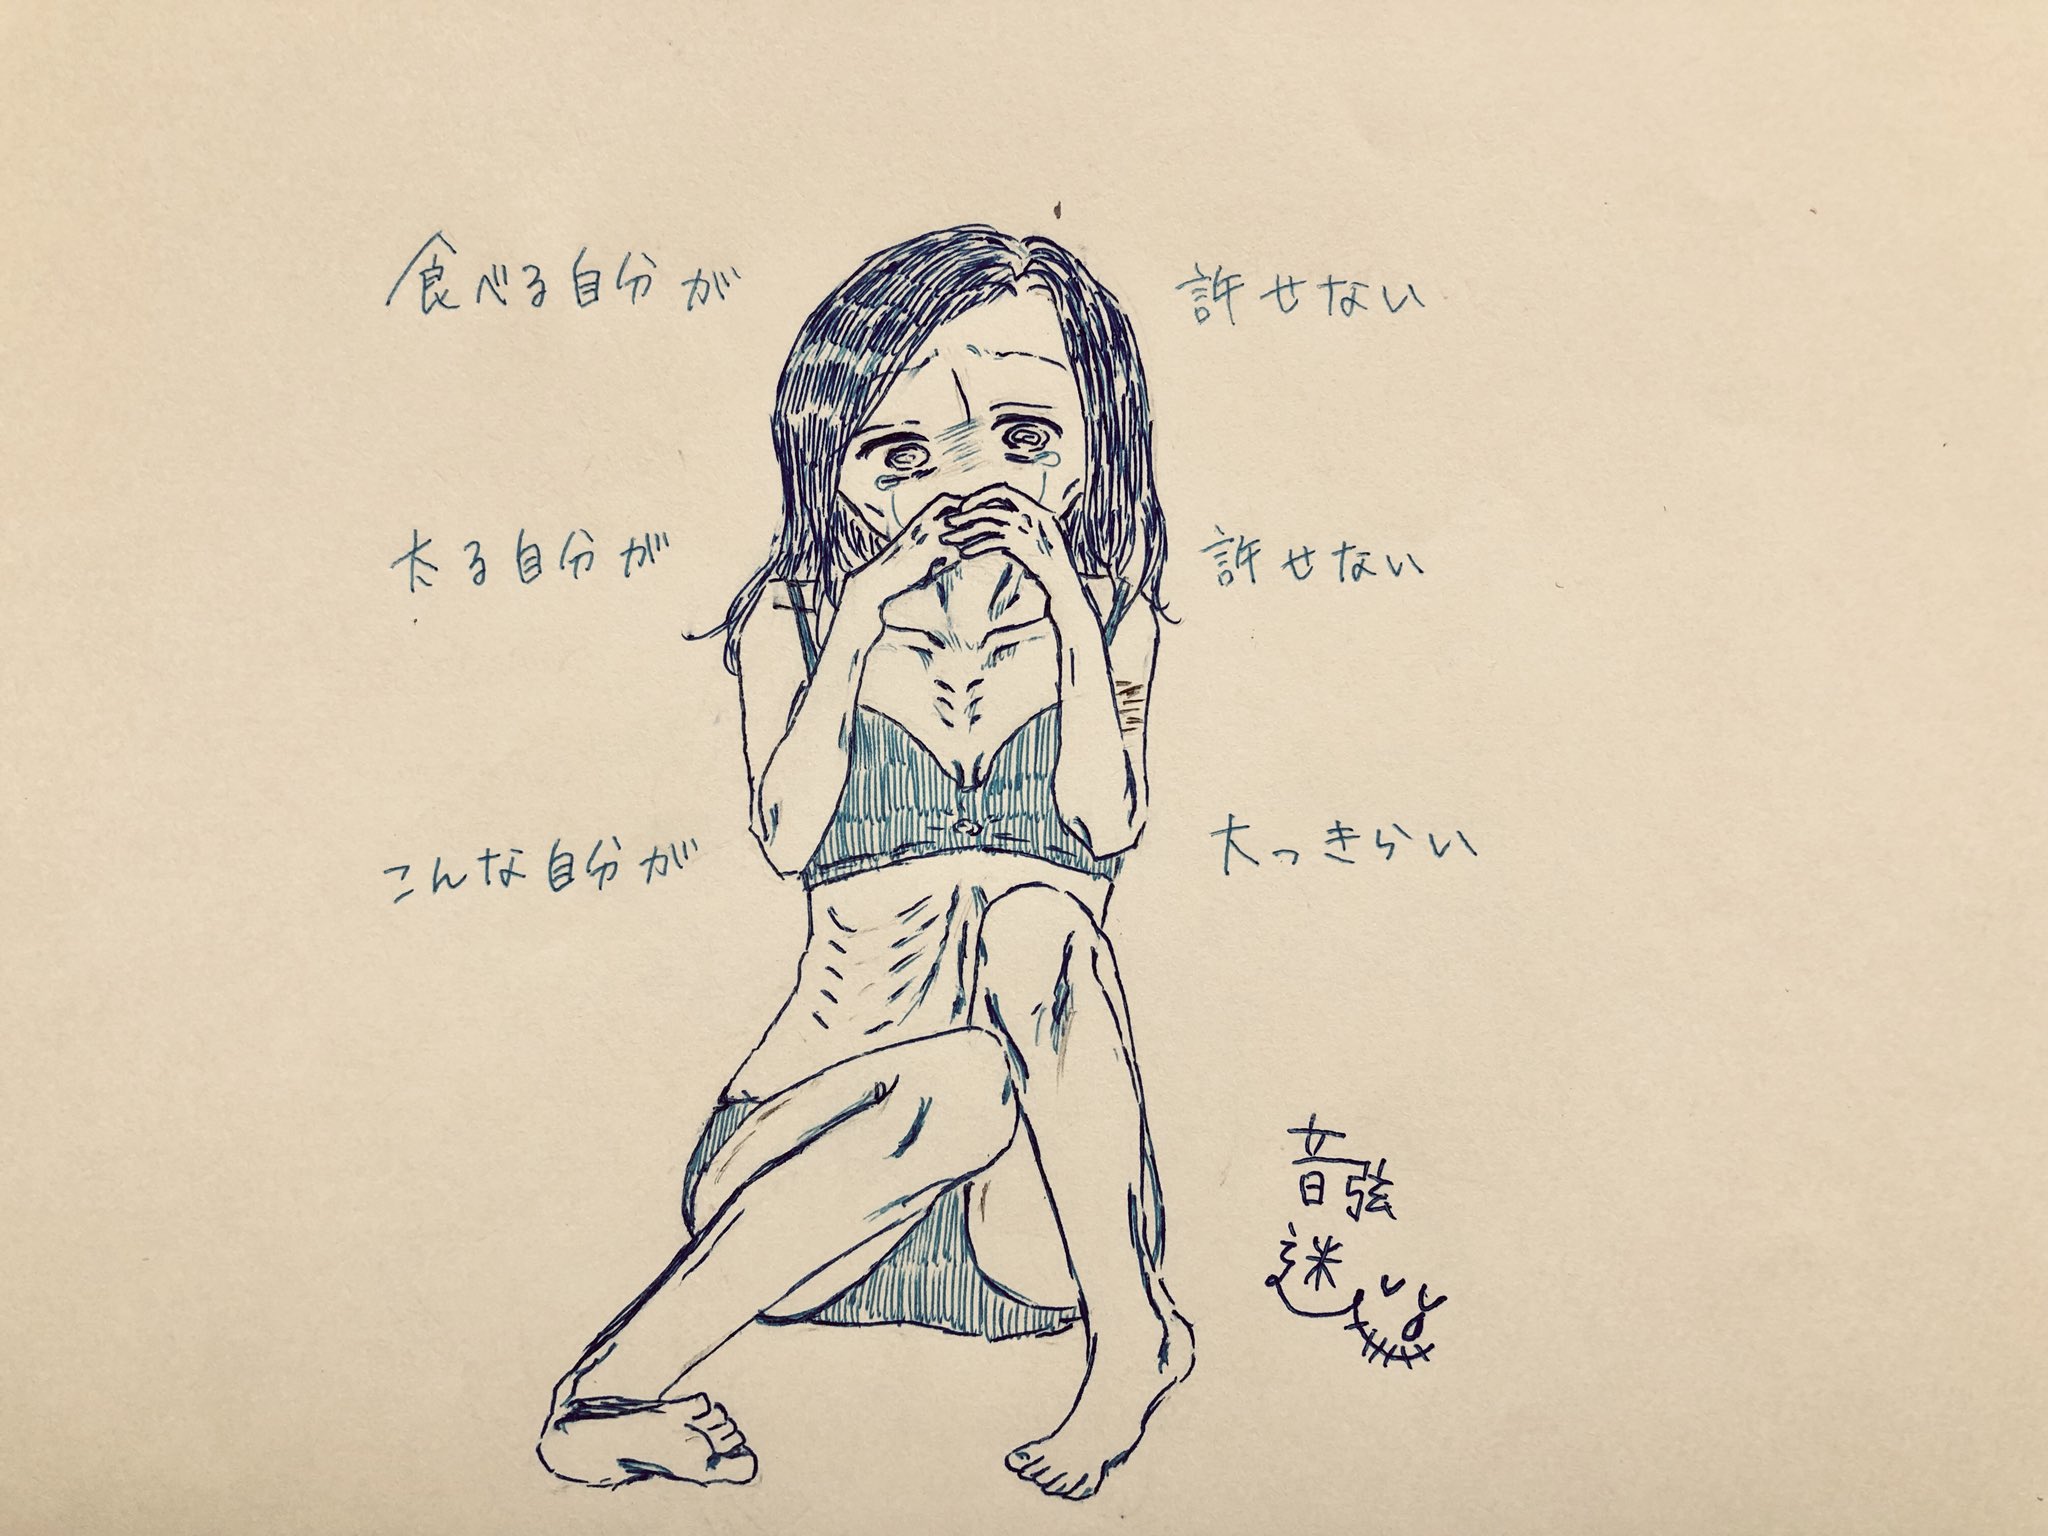 食べる自分が 許せない
太る自分が 許せない
こんな自分が 大っきらい
音弦
迷